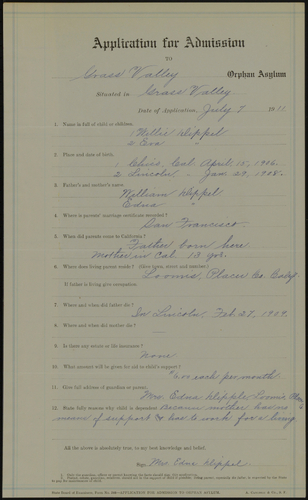 Application for Admission
TO
Grass Valley Orphan Asylum
Situated in Grass Valley
Date of Application, July 7 1911
1. Name in full of child or children.
1 Nellie Klippel
2 Eva "
2. Place and date of birth.
1 Cal. April 15, 1906.
2 Lincoln " Jan 29, 1908.
3. Father's and mother's name
William Klippel
Edna "
4. Where is parents' marriage certificate recorded?
San Francisco.
5. When did parents come to California?
Father born here
Mother in Cal 13 yrs.
6. Where does living parent reside? (Give town, street and number.)
Loomis, Placer Co. Calif
If father is living give occupation.
7. Where and when did father die?
In Lincoln, Feb. 27, 1909.
8. Where and when did mother die?
9. Is there any estate or life insurance?
None
10. What amount will be given for aid of child's support?
each per month.
11. Give full address of guardian or parent.
Mrs. Edna Klipple, Loomis,
12. State fully reasons why child is dependent Because mother has no
means of support & has to work for a living
All the above is absolutely true to my best knowledge and belief.
Sign, Mrs. Edna Klippel